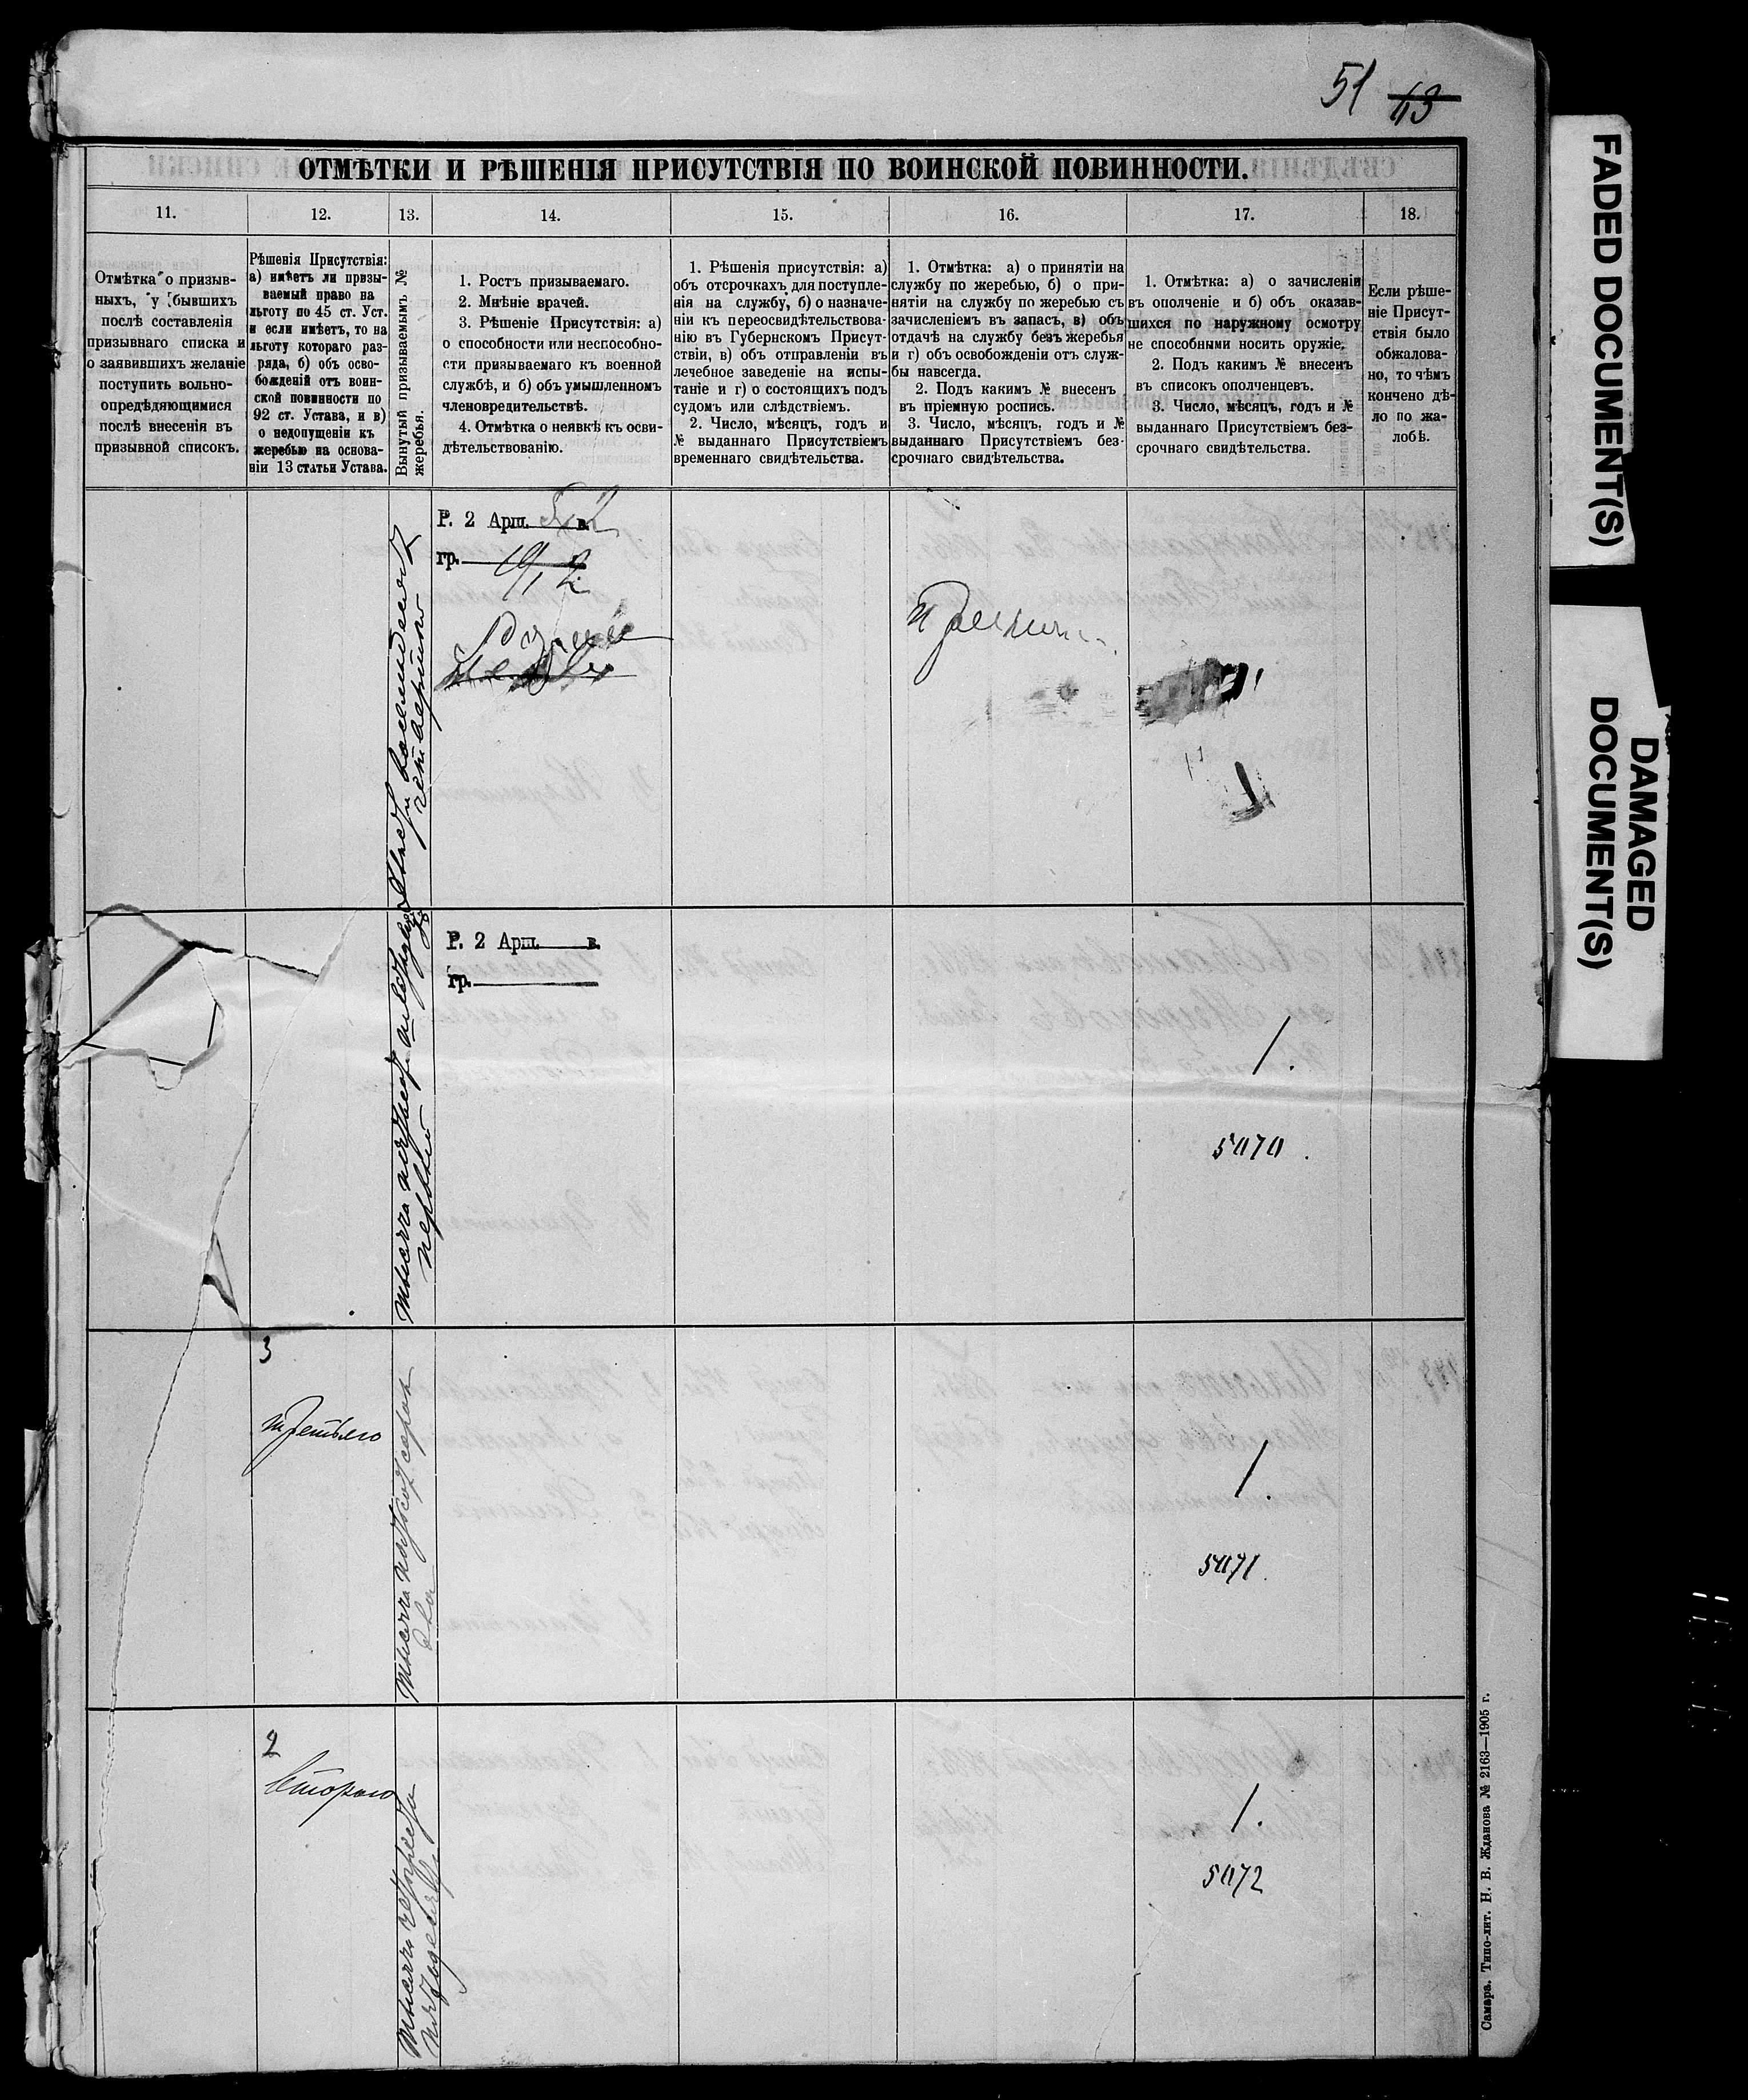 51 43
ОТМѢТКИ И РѢШЕНІЯ ПРИСУТСТВІЯ ПО ВОИНСКОЙ ПОВИННОСТИ.
11.
12.
13.
14.
15.
16.
17.
18.
Отмѣтка о призыв-
ныхъ, у бывшихъ
послѣ составленія
призывнаго списка и
о заявившихъ желаніе
поступить вольно-
опредѣдяющимися
послѣ внесенія въ
призывной списокъ.
Рѣшенія Присутствія:
а) имѣетъ ли призы-
ваемый право на
льготу по 45 ст. Уст.
и если имѣетъ, то на
льготу котораго раз-
ряда, б) объ осво-
божденій отъ воин-
ской повинности по
92 ст. Устава, и в)
о недопущеніи къ
жеребью на основа-
ніи 13 статьи Устава.
Вынутый призываемымъ №
жеребья.
1. Ростъ призываемаго.
2. Мнѣніе врачей.
3. Рѣшеніе Присутствія: а)
о способности или неспособно-
сти призываемаго къ военной
службѣ, и б) объ умышленномъ
членовредительствѣ.
4. Отмѣтка о неявкѣ къ осви-
дѣтельствованію.
1. Рѣшенія присутствія: а)
объ отсрочкахъ для поступле-
нія на службу, б) о назначе-
ніи къ переосвидѣтельствова-
нію въ Губернскомъ Присут-
ствіи, в) объ отправленіи въ
лечебное заведеніе на испы-
таніе и г) о состоящихъ подъ
судомъ или слѣдствіемъ.
2. Число, мѣсяцъ, годъ и
№ выданнаго Присутствіемъ
временнаго свидѣтельства.
1. Отмѣтка: а) о принятіи на
службу по жеребью, б) о при-
нятіи на службу по жеребью съ
зачисленіемъ въ запасъ, в) объ
отдачѣ на службу безъ жеребья
и г) объ освобожденіи отъ служ-
бы навсегда.
2. Подъ какимъ № внесенъ
въ пріемную роспись.
3. Число, мѣсяцъ, годъ и №
выданнаго Присутствіемъ без-
срочнаго свидѣтельства.
1. Отмѣтка: а) о зачисленіи
въ ополченіе и б) объ оказав-
шихся по наружному осмотру
не способными носить оружіе.
2. Подъ какимъ № внесенъ
въ списокъ ополченцевъ.
3. Число, мѣсяцъ, годъ и №
выданнаго Присутствіемъ без-
срочнаго свидѣтельства.
Если рѣше-
ніе Присут-
ствія было
обжалова-
но, то чѣмъ
кончено дѣ-
ло по жа-
лобѣ.
Р. 2 Арш. 5 1/2 в.
гр. 19 1/2
Р. 2 Арш. в.
гр.
1.
5070.
3
третьяго
тысяча пятьсот сорок
два
1.
5071.
2
второго
1.
5072
Самара. Типо-лит. Н. В. Жданова № 2163—1905 г.
FADED DOCUMENT(S)
DAMAGED
DOCUMENT(S)